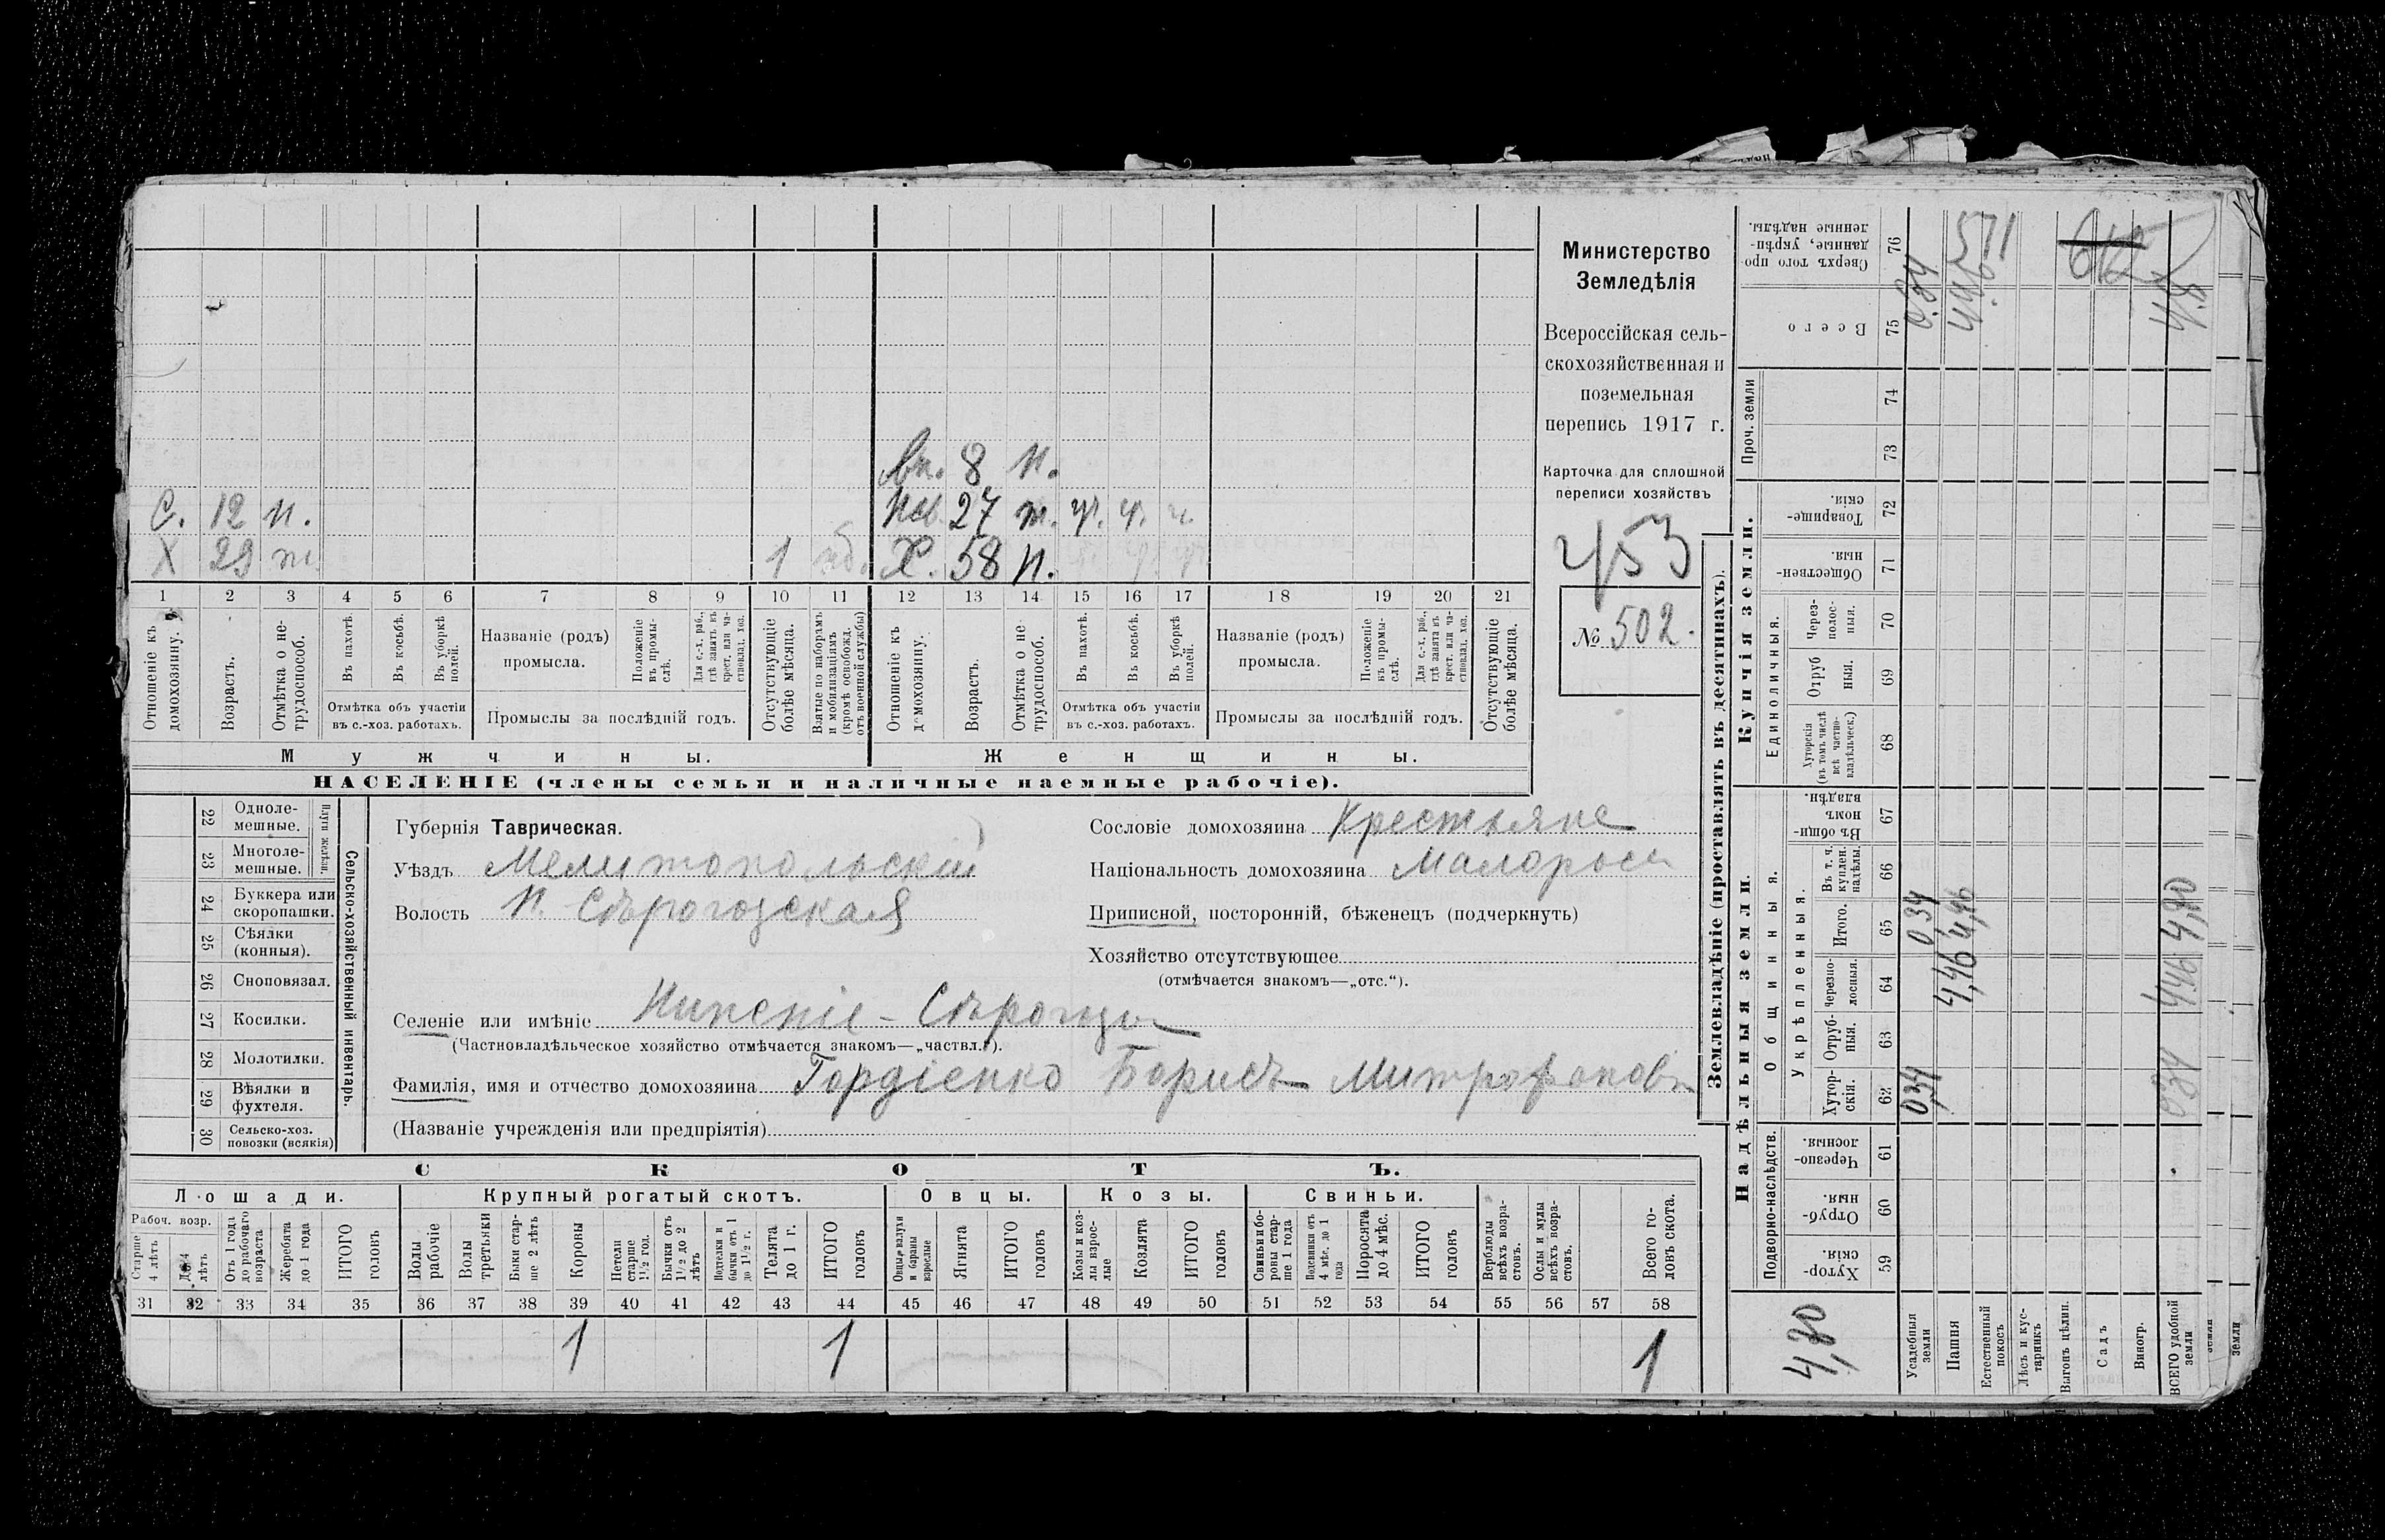 Министерство
Земледѣлія
Всероссійская сель-
скохозяйственная и
поземельная
перепись 1917 г.
Карточка для сплошной
переписи хозяйствъ
453
№ 502.
вн. 8 н.
С. 12 н.
нев. 27 т. ч. ч. ч.
Х 29 т. 1 мб.
Х. 58 н.
1 2 3 4 5 6 7 8 9 10 11 12 13 14 15 16 17 18 19 20 21
Отношеніе къ домохозяину.
Возрастъ.
Отмѣтка о не-трудоспособ.
Въ пахотѣ.
Въ косьбѣ.
Въ уборкѣ полей.
Отмѣтка объ участіи въ с.-хоз. работахъ.
Названіе (родъ) промысла.
Положеніе въ промы-слѣ.
Для с.-х. раб., гдѣ занятъ въ крест. или ча-стновлад. хоз.
Промыслы за послѣдній годъ.
Отсутствующіе болѣе мѣсяца.
Взятые по наборамъ и мобилизаціямъ (кромѣ освобожд. отъ военной службы)
Отношеніе къ домохозяину.
Возрастъ.
Отмѣтка о не-трудоспособ.
Въ пахотѣ.
Въ косьбѣ.
Въ уборкѣ полей.
Отмѣтка объ участіи въ с.-хоз. работахъ.
Названіе (родъ) промысла.
Положеніе въ промы-слѣ.
Для с.-х. раб., гдѣ занята въ крест. или ча-стновлад. хоз.
Промыслы за послѣдній годъ.
Отсутствующіе болѣе мѣсяца.
Мужчины. Женщины.
НАСЕЛЕНІЕ (члены семьи и наличные наемные рабочіе).
Сельско-хозяйственный инвентарь.
Плуги желѣзн.
22 Одноле-мешные.
23 Многоле-мешные.
24 Буккера или скоропашки.
25 Сѣялки (конныя).
26 Сноповязал.
27 Косилки.
28 Молотилки.
29 Вѣялки и фухтеля.
30 Сельско-хоз. повозки (всякія)
Губернія Таврическая.
Уѣздъ Мелитопольскій
Волость Н. Сѣрогозская
Селеніе или имѣніе Нижніе - Сѣрогозы
(Частновладѣльческое хозяйство отмѣчается знакомъ—„частвл.“).
Фамилія, имя и отчество домохозяина Гордіенко Борисъ Митрофановъ
(Названіе учрежденія или предпріятія)
Сословіе домохозяина Крестьяне
Національность домохозяина Малороссъ
Приписной, посторонній, бѣженецъ (подчеркнуть)
Хозяйство отсутствующее
(отмѣчается знакомъ—„отс.“).
СКОТЪ.
Лошади. Крупный рогатый скотъ. Овцы. Козы. Свиньи.
Рабоч. возр.
Старше 4 лѣтъ
До 4 лѣтъ
Отъ 1 года до рабочаго возраста
Жеребята до 1 года
ИТОГО головъ
Волы рабочіе
Волы третьяки
Быки стар-ше 2 лѣтъ
Коровы
Нетели старше 1½ год.
Бычки отъ 1½ до 2 лѣтъ
Подтелки и бычки отъ 1 до 1½ г.
Телята до 1 г.
ИТОГО головъ
Овцы, валухи и бараны взрослые
Ягнята
ИТОГО головъ
Козы и коз-лы взрос-лые
Козлята
ИТОГО головъ
Свиньи и бо-ровы стар-ше 1 года
Подсвинки отъ 4 мѣс. до 1 года
Поросята до 4 мѣс.
ИТОГО головъ
Верблюды всѣхъ возра-стовъ.
Ослы и мулы всѣхъ возра-стовъ.
Всего го-ловъ скота.
31 32 33 34 35 36 37 38 39 40 41 42 43 44 45 46 47 48 49 50 51 52 53 54 55 56 57 58
1 1 1
Землевладѣніе (проставлять въ десятинахъ).
Надѣльныя земли. Купчія земли.
Подворно-наслѣдств.
Общинныя.
Укрѣпленныя.
Единоличныя.
Проч. земли
Хутор-скія. 59
Отруб-ныя. 60
Черезпо-лосныя. 61
Хутор-скія. 62
Отруб-ныя. 63
Черезпо-лосныя. 64
Итого. 65
Въ т. ч. куплен. надѣлы. 66
Въ общи-номъ владѣн. 67
Хуторскія (въ томъ числѣ всѣ частно-владѣльческ.) 68
Отруб ныя. 69
Через-полос-ныя. 70
Обществен-ныя. 71
Товарище-скія. 72
73
74
Всего 75
Сверхъ того про-данные, укрѣп-ленные надѣлы. 76
4,80
Усадебныя земли 0,34 034 0.34
Пашня 4,46 4,46 4,46 571
Естественный покосъ
Лѣсъ и кус-тарникъ
Выгонъ цѣлин.
Садъ
Виногр.
ВСЕГО удобной земли 034 446 4,80 4.8
земли